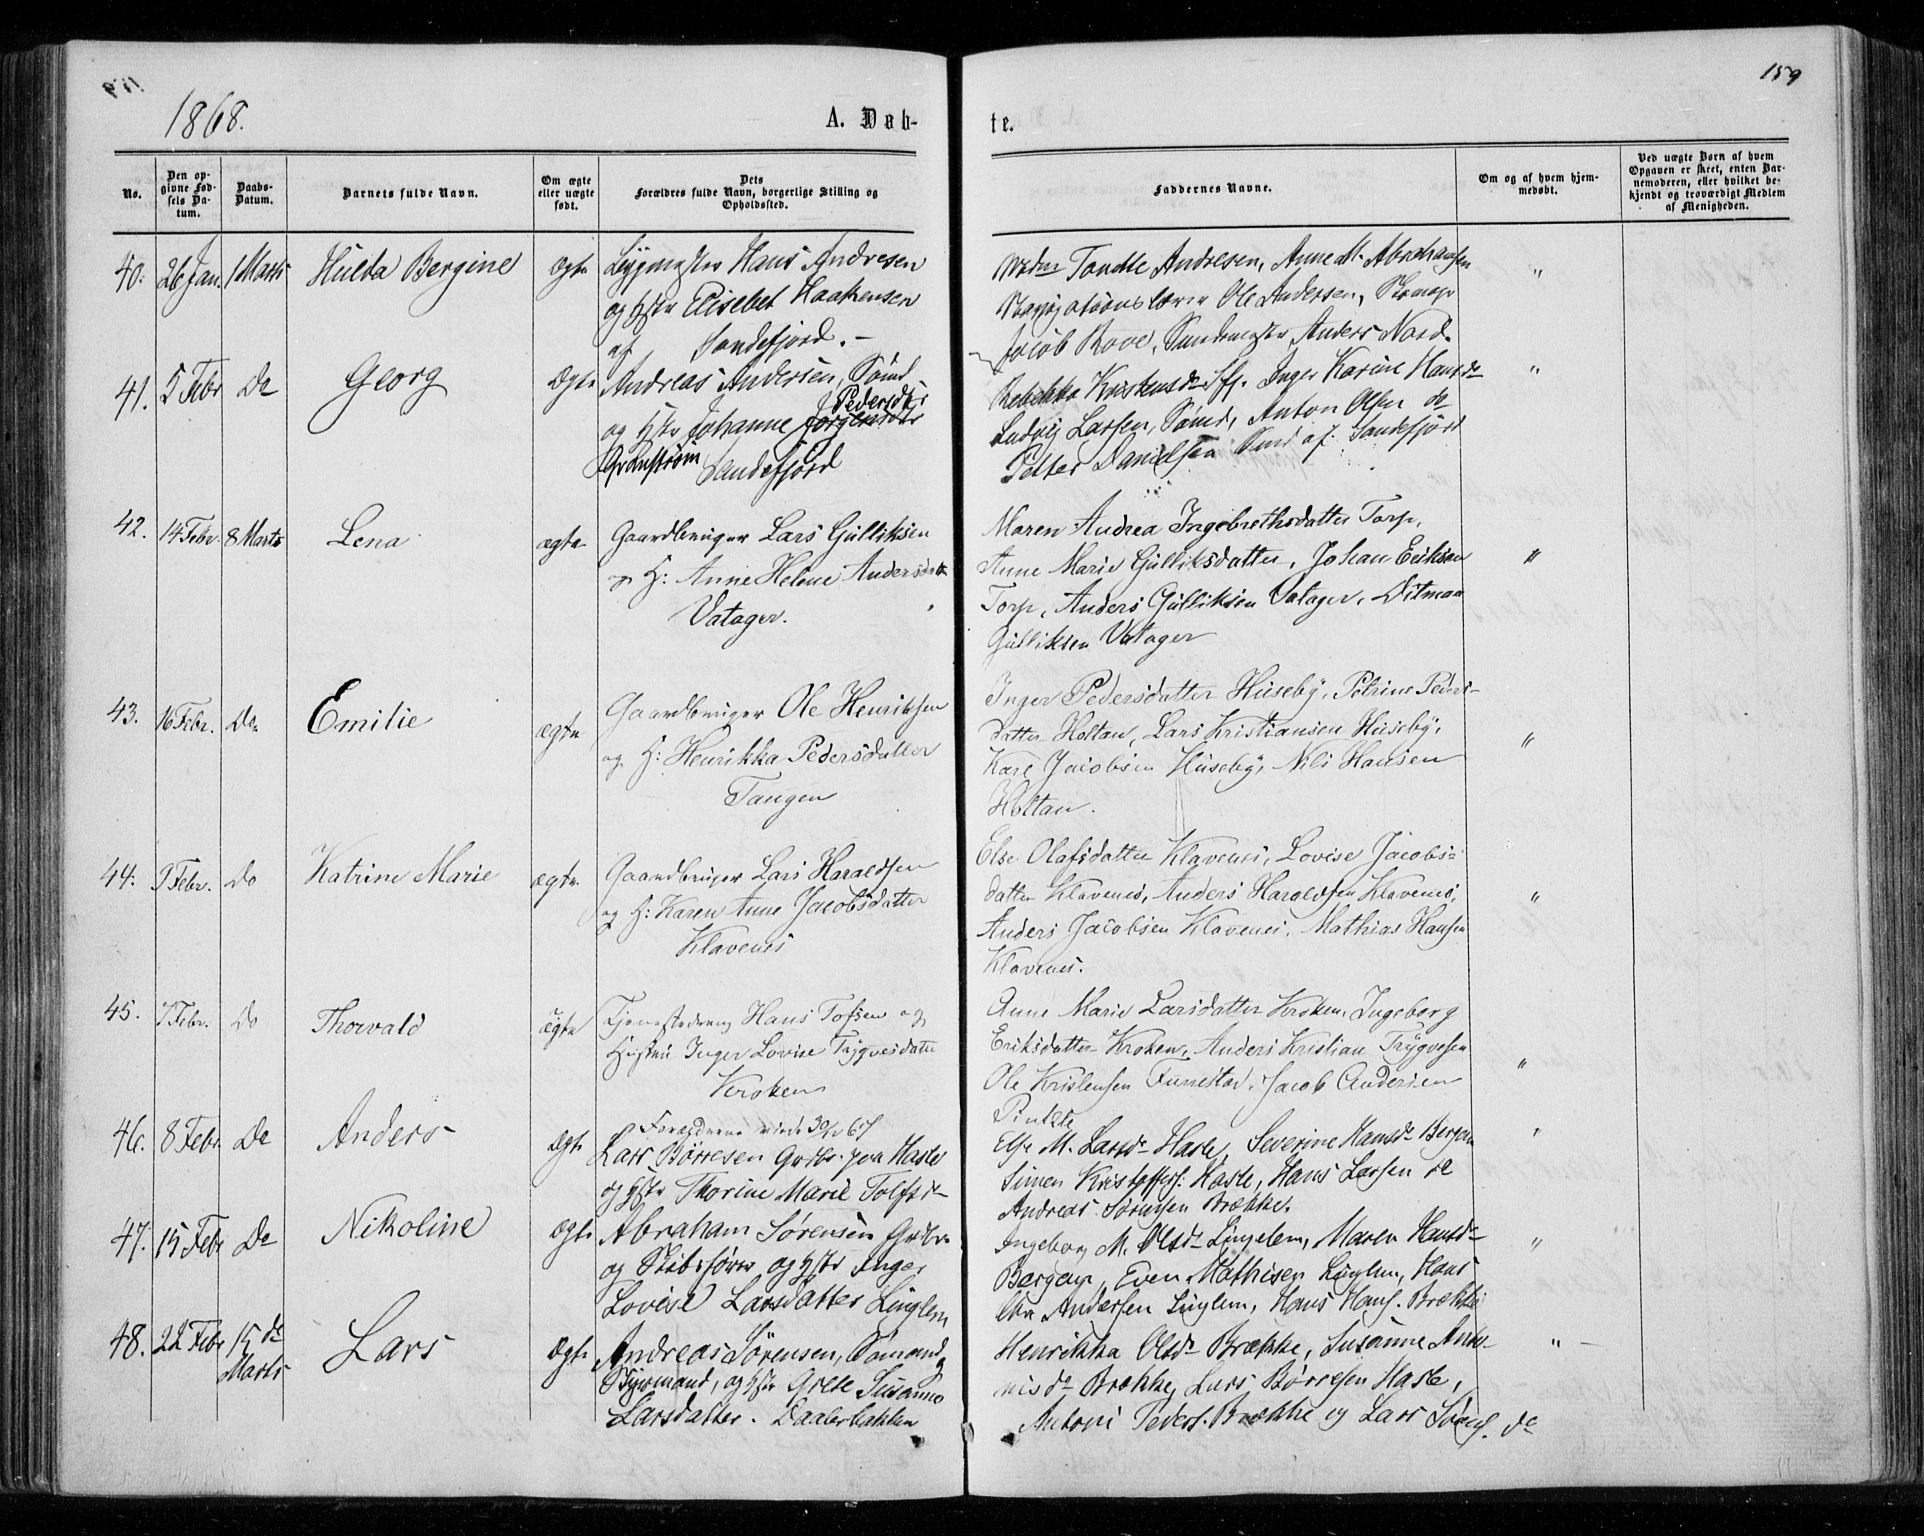 159
1868.
A. Døb-
te.
No.
Den op-
givne Fød-
sels Da-
tum.
Daabs-
Datum.
Barnets fulde Navn.
Om ægte
eller uægte
født.
Dets
Forældres fulde Navn, borgerlige Stilling og
Opholdssted.
Faddernes Navne.
Om og af hvem hjem-
medøbt.
Ved uægte Børn af hvem
Opgaven er skeet, enten Bar-
nemoderen, eller hvilket be-
kjendt og troværdigt Medlem
af Menigheden.
40. 26 Jan. 1 Marts Hulda Bergine ægte
Hans Andresen
og Hstr Elisebet Haakensen
af Sandefjord. -
Andresen, Anne M. Abrahamsen
Ole Andersen,
Jacob Rove, Anders Nord.
"
41. 5 Febr Do Georg Ægte
Andreas Andersen, Sømd
Pedersdtr
og Hstr Johanne Jørgensdtr
Granstrøm Sandefjord
Rebekka Kristensdr Sfj. Inger Karine Hansdr
Ludvig Larsen, Sømd, Anton Olsen do
Petter Danielsen Smd af Sandefjord
"
42. 14 Febr. 8 Marts Lena ægte
Gaardbruger Lars Gulliksen
og H: Anne Helene Andersdtr
Vatager.
Maren Andrea Ingebrethsdatter Torp,
Anne Marie Gulliksdatter, Johan Eriksen
Torp, Anders Gulliksen Vatager, Ditman
Gulliksen Vatager
"
43. 16 Febr. Do Emilie ægte
Gaardbruger Ole Henriksen
og H: Henrikka Pedersdatter
Tangen
Inger Pedersdatter Huseby, Petrine Peders-
datter Holtan, Lars Kristiansen Huseby,
Karl Jacobsen Huseby, Nils Hansen
Holtan.
"
44. 9 Febr. Do Katrine Marie ægte
Gaardbruger Lars Haraldsen
og H: Karen Anne Jacobsdatter
Klavenes
Else Olafsdatter Klavenes, Lovise Jacobs-
datter Klavenes, Anders Haraldsen Klavenes,
Anders Jacobsen Klavenes, Mathias Hansen
Klavenes.
"
45. 7 Febr. Do Thorvald ægte
Tjenestedreng Hans Tofsen og
Hustru Inger Lovise Trygvesdatter
Kroken
Anne Marie Larsdatter Kroken, Ingeborg
Eriksdatter Kroken, Anders Kristian Trygvesen
Ole Kristensen Furrestad, Jacob Andersen
"
46. 8 Febr. Do Anders Ægte
Forældrene viede 30/12 67
Lars Børresen Grdbr. paa Hasle
og Hstr Thorine Marie Tolfsdr
Else M. Larsdr Hasle, Severine Hansdr Bergan
Simen Kristoffers: Hasle, Hans Larsen do
Andreas Sørensen Brække.
"
47. 15 Febr Do Nikoline ægte
Abraham Sørensen Grdbr
og Skibsfører og Hstr Inger
Lovise Larsdatter Linglem
Ingeborg M. Olsdr Linglem, Maren Hansdr
Bergan, Even Mathisen Linglem, Hans
Chr Andersen Linglem, Hans Hans. Brække
"
48. 22 Febr 15 de Marts Lars Ægte
Andreas Sørensen, Sømand og
Styrmand, og Hstr Grete Susanne
Larsdatter. Daalerbakken
Henrikka Olsdr Brække, Susanne Anto-
nisdr Brække, Lars Børresen Hasle,
Antoni Peders. Brække og Lars Sørens. do
"